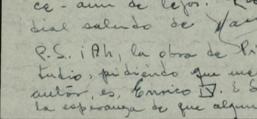 ce - aun de lejos.
dial saludo de
P.S. ¡Ah, la obra de
tudio, pidiendo que me
autor, es, Enrico IV. E S
la esperanza de que algun